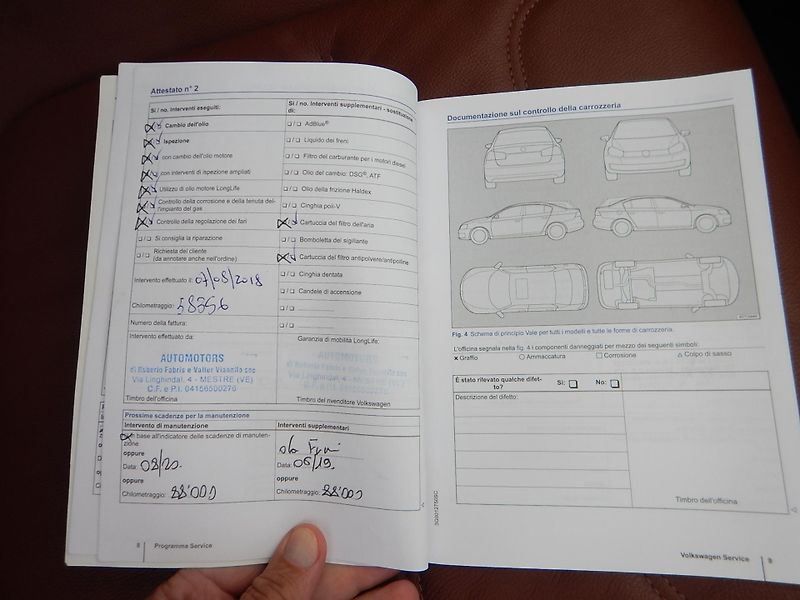 Attestato n° 2
Si / no. Interventi eseguiti:
Cambio dell'olio
Ispezione
con cambio dell'olio motore
con interventi di ispezione ampliati
Utilizzo di olio motore LongLife
Controllo della corrosione e della tenuta del-
l'impianto del gas
Controllo della regolazione dei fari
Si consiglia la riparazione
Richiesta del cliente
(da annotare anche nell'ordine)
Intervento effettuato il: 07/08/2018
Chilometraggio: 58356
Numero della fattura:
Intervento effettuato da:
AUTOMOTORS
di Roberto Fabris e Valter Vianello snc
Via Linghindal, 4 - MESTRE (VE)
C.F. e P.I. 04156500276
Timbro dell'officina
Si / no. Interventi supplementari - sostituzione
di:
AdBlue®
Liquido dei freni
Filtro del carburante per i motori diesel
Olio del cambio: DSG®, ATF
Olio della frizione Haldex
Cinghia poli-V
Cartuccia del filtro dell'aria
Bomboletta del sigillante
Cartuccia del filtro antipolvere/antipolline
Cinghia dentata
Candele di accensione
Garanzia di mobilità LongLife:
Timbro del rivenditore Volkswagen
Prossime scadenze per la manutenzione
Intervento di manutenzione
In base all'indicatore delle scadenze di manuten-
zione
oppure
Data: 08/20
oppure
Chilometraggio: 88'000
Interventi supplementari
Data: 05/19
oppure
Chilometraggio: 88'000
8 Programma Service
Documentazione sul controllo della carrozzeria
Fig. 4 Schema di principio Vale per tutti i modelli e tutte le forme di carrozzeria.
L'officina segnala nella fig. 4 i componenti danneggiati per mezzo dei seguenti simboli:
x Graffio ○ Ammaccatura □ Corrosione △ Colpo di sasso
È stato rilevato qualche difet-
to?
Sì: No:
Descrizione del difetto:
Timbro dell'officina
Volkswagen Service 9